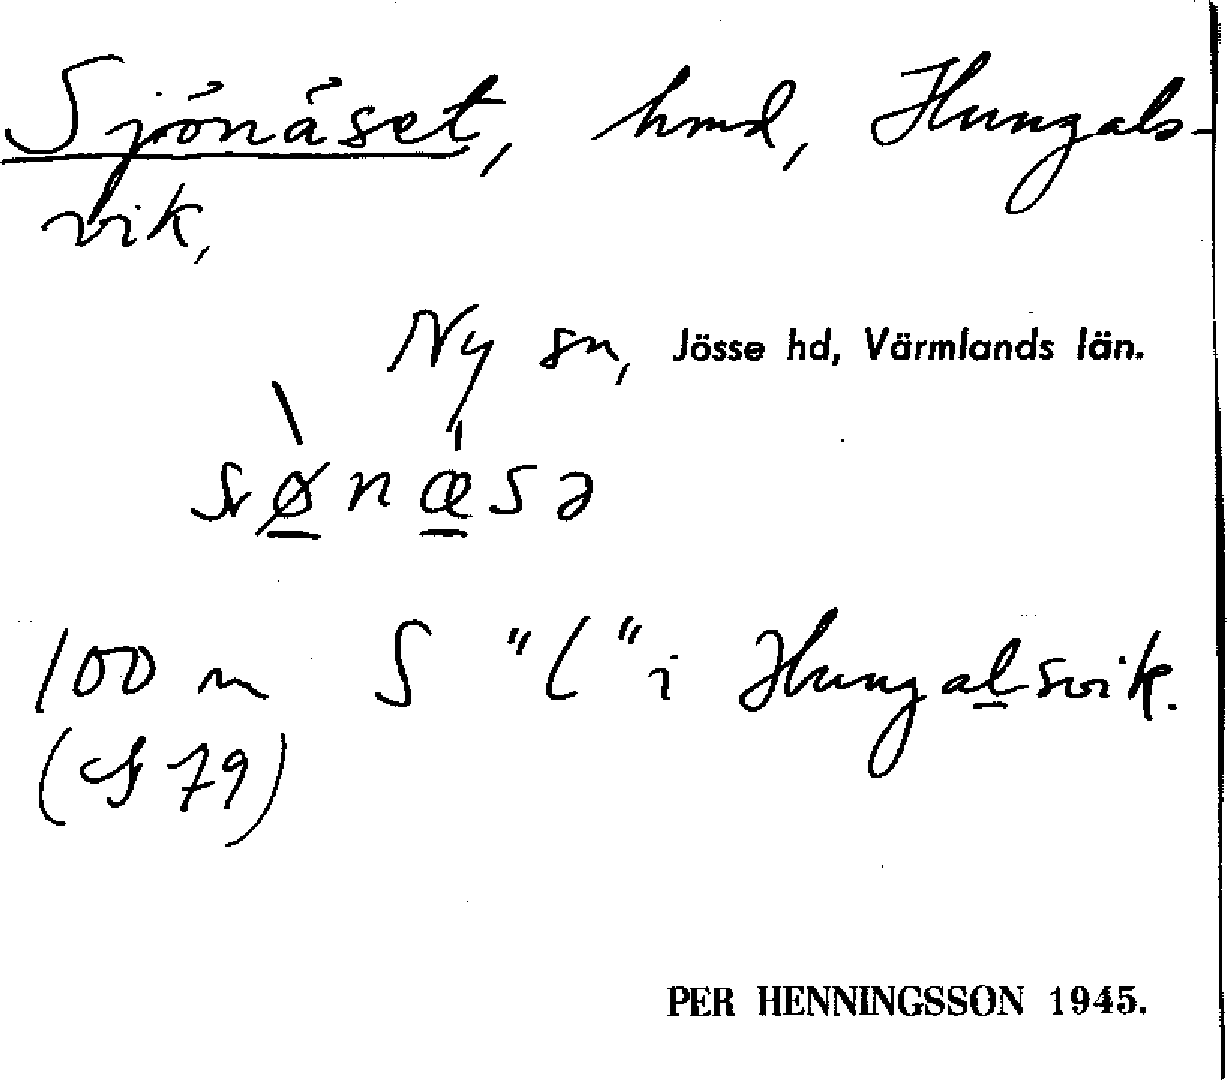 Sjönäset, hmd, Hungals-
vik,
Ny sn, Jösse hd, Värmlands län.
sønæsə
100 m S "l" i Hungalsvik.
(cf 79)
PER HENNINGSSON 1945.